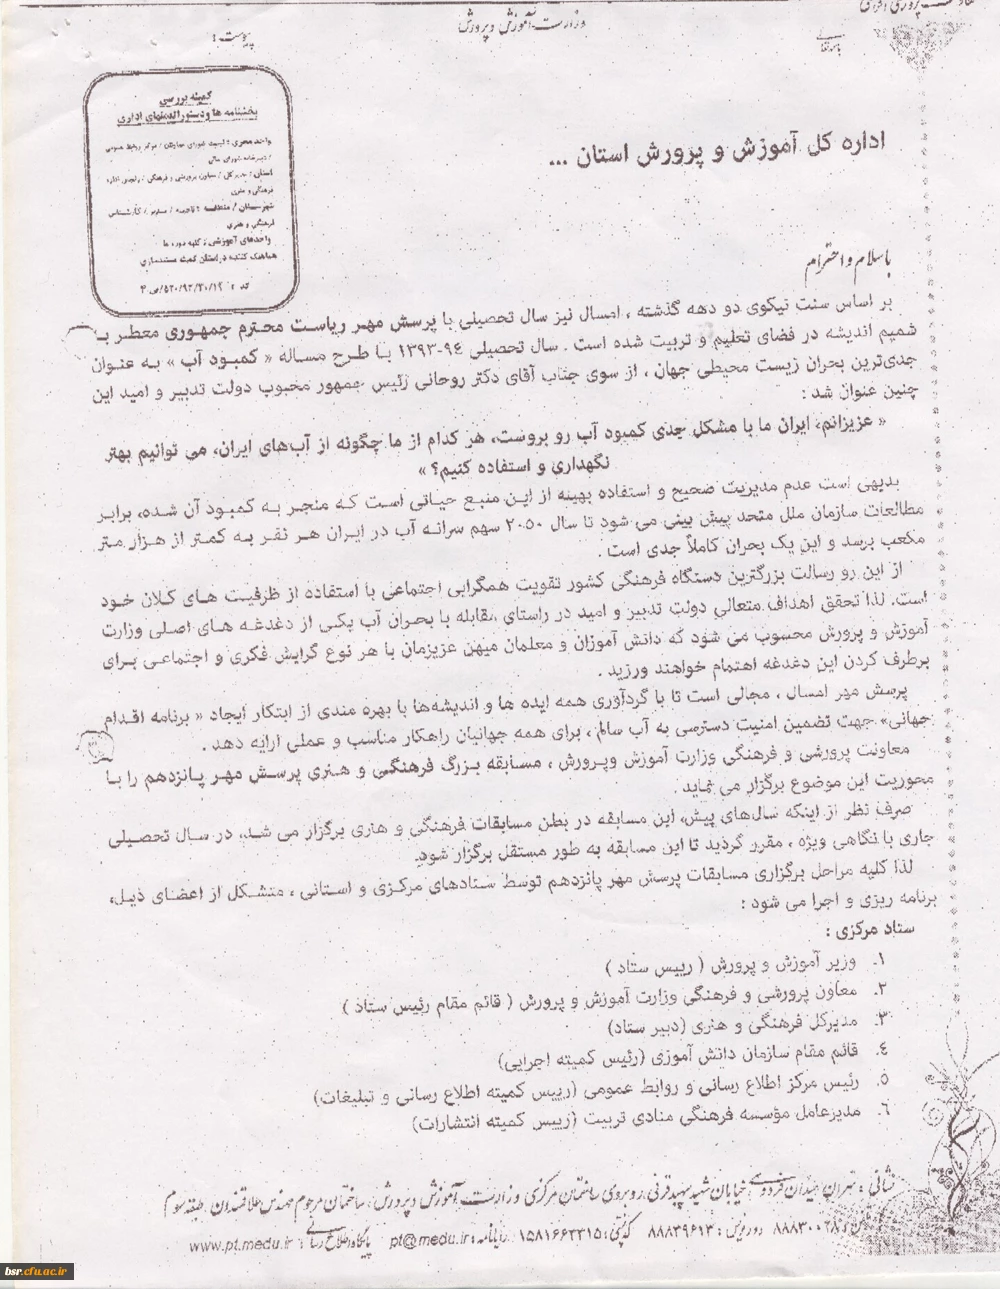 وزارت آموزش و پرورش
پیوست :
کمیته بررسی
بخشنامه ها و دستورالعملهای اداری
اداره کل آموزش و پرورش استان ...
با سلام و احترام
بر اساس سنت نیکوی دو دهه گذشته ، امسال نیز سال تحصیلی با پرسش مهر ریاست محترم جمهوری معطر به
شمیم اندیشه در فضای تعلیم و تربیت شده است . سال تحصیلی ۹٤-۱۳۹۳ با طرح مساله « کمبود آب » به عنوان
جدی‌ترین بحران زیست محیطی جهان ، از سوی جناب آقای دکتر روحانی رئیس جمهور محبوب دولت تدبیر و امید این
چنین عنوان شد :
« عزیزانم، ایران ما با مشکل جدی کمبود آب رو بروست، هر کدام از ما چگونه از آب‌های ایران، می توانیم بهتر
نگهداری و استفاده کنیم؟ »
بدیهی است عدم مدیریت صحیح و استفاده بهینه از این منبع حیاتی است که منجر به کمبود آن شده، برابر
مطالعات سازمان ملل متحد پیش بینی می شود تا سال ۲۰۵۰ سهم سرانه آب در ایران هر نفر به کمتر از هزار متر
مکعب برسد و این یک بحران کاملاً جدی است .
از این رو رسالت بزرگترین دستگاه فرهنگی کشور تقویت همگرایی اجتماعی با استفاده از ظرفیت های کلان خود
است. لذا تحقق اهداف متعالی دولت تدبیر و امید در راستای مقابله با بحران آب یکی از دغدغه های اصلی وزارت
آموزش و پرورش محسوب می شود که دانش آموزان و معلمان میهن عزیزمان با هر نوع گرایش فکری و اجتماعی برای
برطرف کردن این دغدغه اهتمام خواهند ورزید .
پرسش مهر امسال ، مجالی است تا با گردآوری همه ایده ها و اندیشه‌ها با بهره مندی از ابتکار ایجاد « برنامه اقدام
جهانی» جهت تضمین امنیت دسترسی به آب سالم ، برای همه جهانیان راهکار مناسب و عملی ارایه دهد .
معاونت پرورشی و فرهنگی وزارت آموزش وپرورش ، مسابقه بزرگ فرهنگی و هنری پرسش مهر پانزدهم را با
محوریت این موضوع برگزار می نماید .
صرف نظر از اینکه سال‌های پیش، این مسابقه در بطن مسابقات فرهنگی و هنری برگزار می شد، در سال تحصیلی
جاری با نگاهی ویژه ، مقرر گردید تا این مسابقه به طور مستقل برگزار شود.
لذا کلیه مراحل برگزاری مسابقات پرسش مهر پانزدهم توسط ستادهای مرکزی و استانی ، متشکل از اعضای ذیل،
برنامه ریزی و اجرا می شود :
ستاد مرکزی :
۱. وزیر آموزش و پرورش ( رییس ستاد )
۲. معاون پرورشی و فرهنگی وزارت آموزش و پرورش ( قائم مقام رئیس ستاد )
۳. مدیرکل فرهنگی و هنری (دبیر ستاد)
٤. قائم مقام سازمان دانش آموزی (رئیس کمیته اجرایی)
۵. رئیس مرکز اطلاع رسانی و روابط عمومی (رییس کمیته اطلاع رسانی و تبلیغات)
٦. مدیرعامل مؤسسه فرهنگی منادی تربیت (رییس کمیته انتشارات)
نشانی : تهران میدان فردوسی خیابان شهید سپهبد قرنی روبروی ساختمان مرکزی وزارت آموزش و پرورش ، ساختمان مرحوم مهندس علاقمندان ، طبقه سوم
۸۸۸۳۰۰۲۸ دورنویس : ۸۸۸۳۹۶۱۳ کدپستی : ۱۵۸۱۶۶۳۳۱۵ رایانامه : pt@medu.ir پایگاه اطلاع رسانی www.pt.medu.ir
bsr.cfu.ac.ir